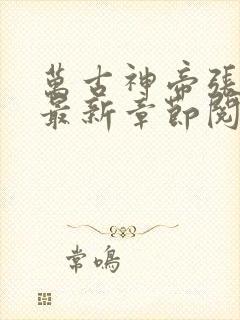 萬古神帝張
最新章節閱
常鳴